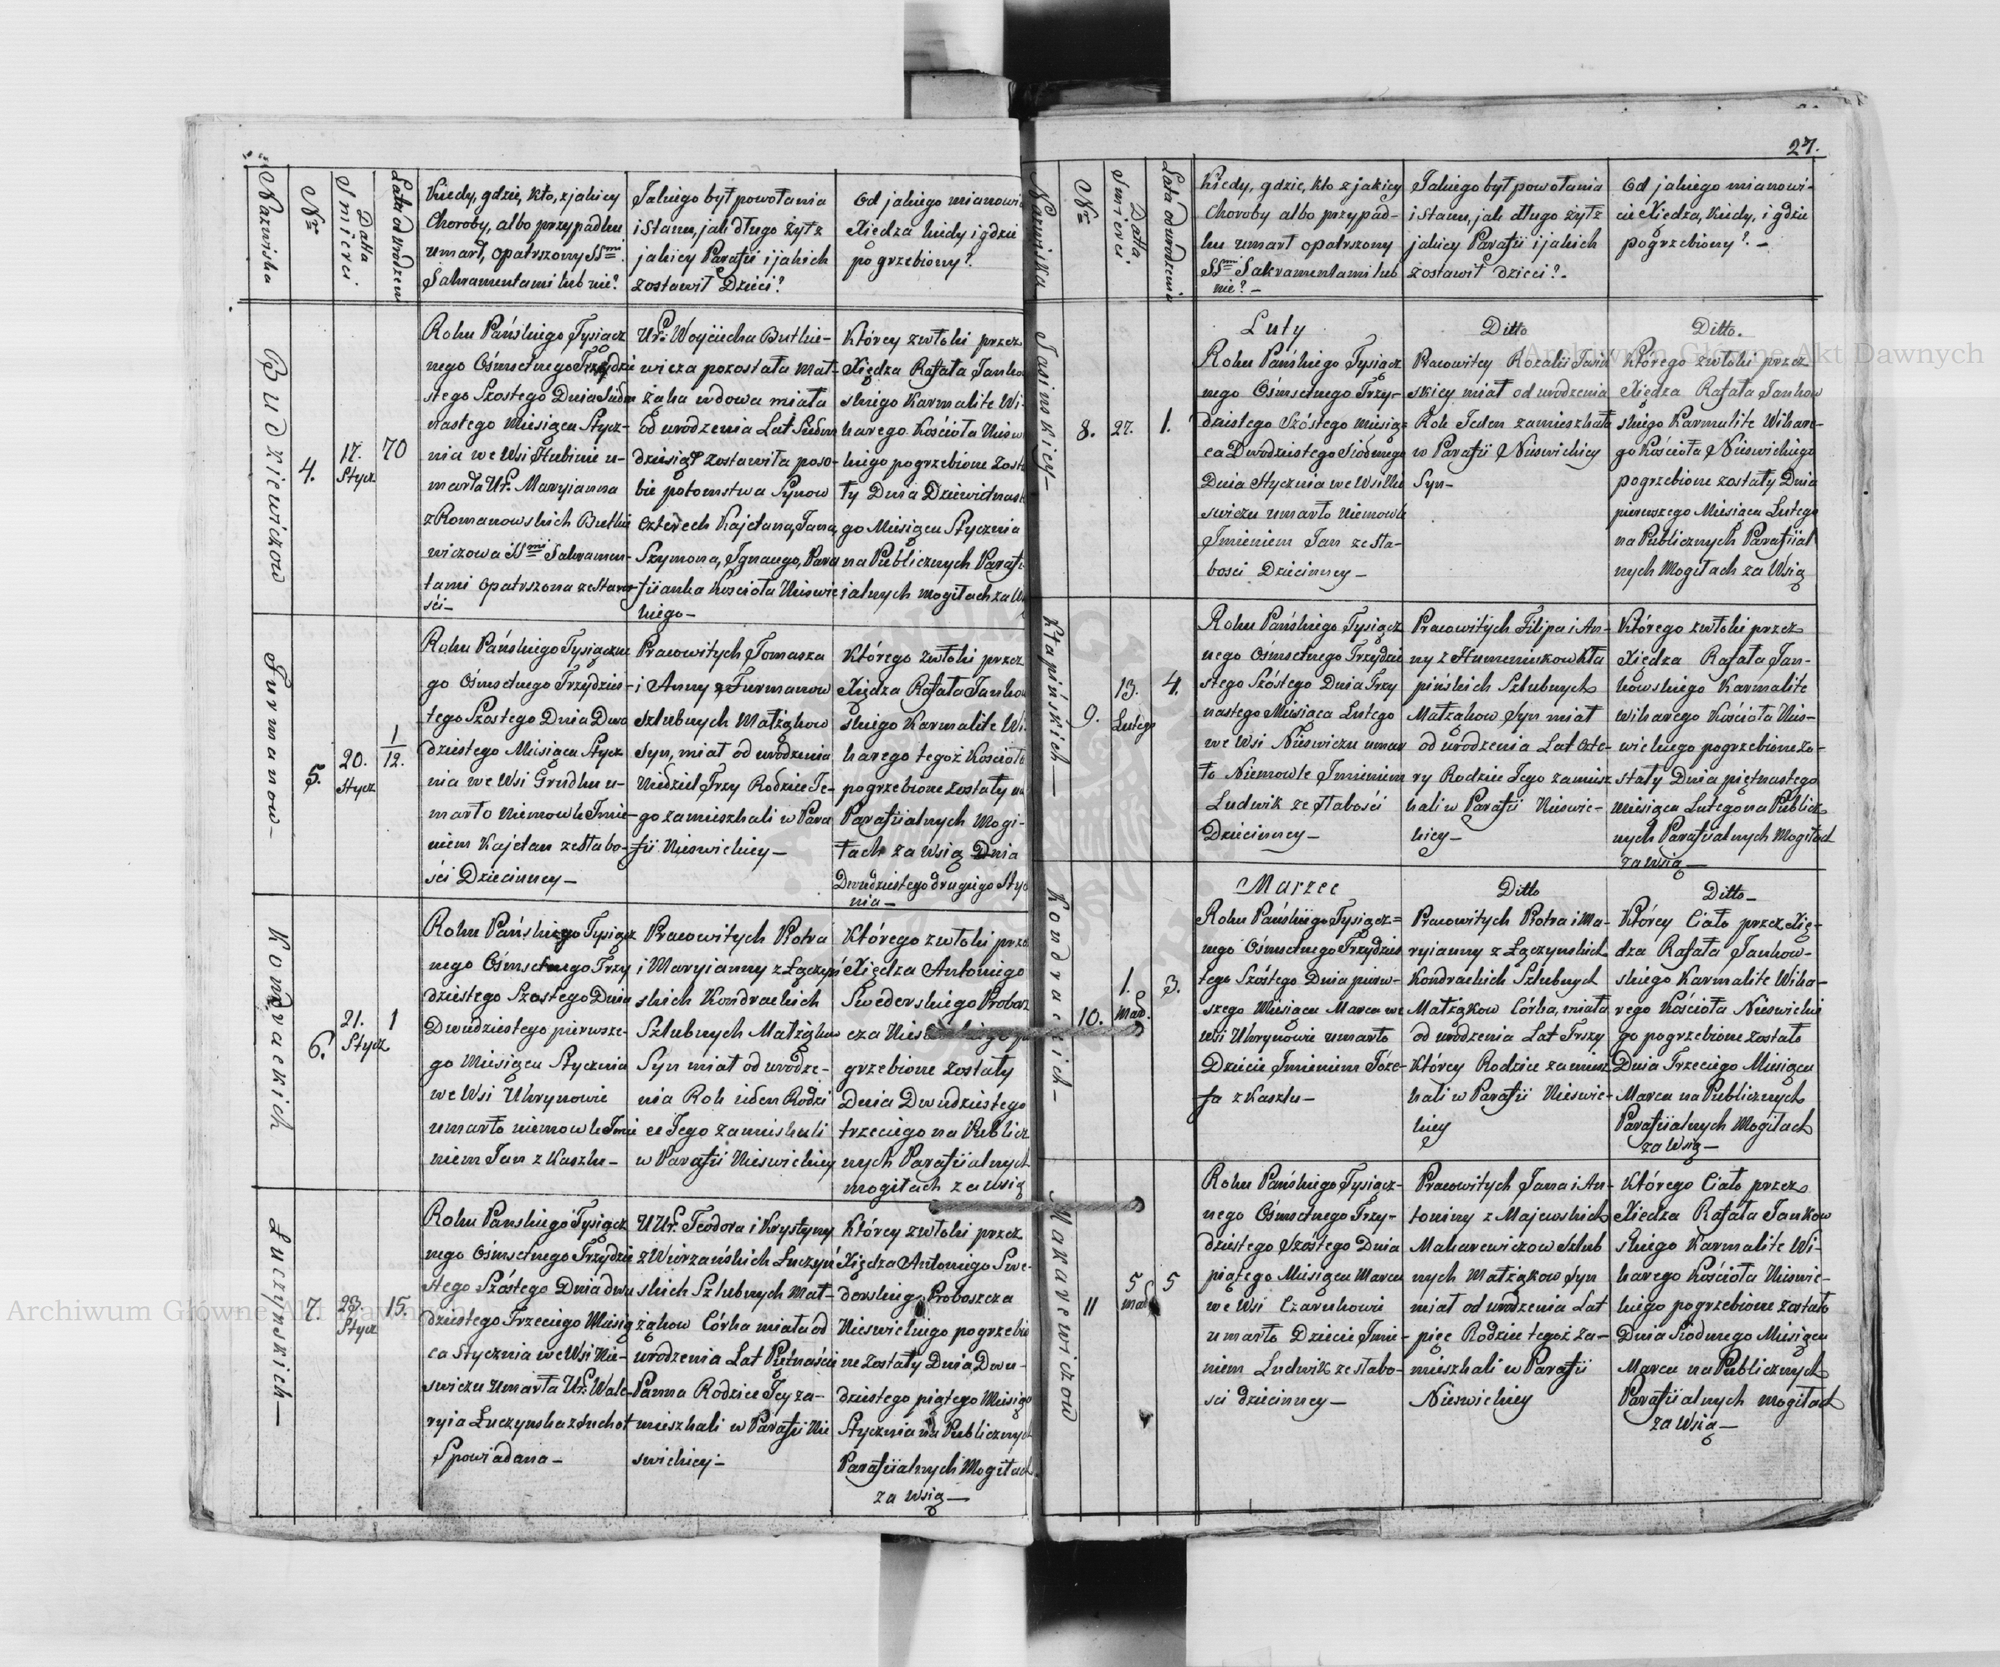 27.
Nazwiska
Nro
Datta Smierci.
Lata od urodzen
Kiedy, gdzie, kto, z jakiey
Choroby, albo przypadku
umarł, opatrszony SSmi.
Sakramentami lub nie?
Jakiego był powołania
i stanu, jak długo żył z
jakiey Parafii i jakich
zostawił Dzieci?
Od jakiego mianowi
Xiędza kiedy i gdzie
pogrzebiony?
Budkiewiczow
4.
17.
Stycz
70
Roku Pańskiego Tysiącz
nego Ośmsetnego Trzydzie
stego Szostego Dnia Siedm
nastego Miesiąca Stycz-
nia we Wsi Hubinie u-
marła Ur. Maryianna
z Romanowskich Butkie
wiczowa SSmi Sakramen-
tami opatrszona ze Staro-
ści-
Ur. Woyciecha Butkie-
wicza pozostała Mał-
żąka wdowa miała
od urodzenia Lat Siedm
dziesiąt zostawiła poso-
bie potomstwa Synow
czterech Kajetana, Jana,
Szymona, Ignacego, Para
fiianka Kościoła Nieswie
kiego-
Którey zwłoki przez
Xiędza Rafała Janko
skiego Karmalite Wi-
karego Kościoła Niesw
kiego pogrzebione Zosta
ły Dnia Dziewietnast
go Miesiąca Stycznia
na Publicznych Parafi
ialnych mogiłach za W
Furmanow-
5.
20.
Stycz
1/12.
Roku Pańskiego Tysiączne
go Ośmsetnego Trzydzies-
tego Szostego Dnia Dwu
dziestego Miesiąca Stycz
nia we Wsi Grudku u-
marło Niemowle Imie-
niem Kajetan ze Słabo-
ści Dziecinney-
Pracowitych Tomasza
i Anny z Furmanow
szlubnych Małżąkow
Syn, miał od urodzenia
Niedziel Trzy Rodzice Je-
go zamieszkali w Para
fii Nieswickiey-
Którego Zwłoki przez
Xiędza Rafała Janko
skiego Karmalite Wi-
karego tegoż Kościoła
pogrzebione zostały na
Parafiialnych Mogi-
łach za Wsią Dnia
Dwudziestego drugiego Stycz
nia-
Kondrackich
6.
21.
Stycz
1
Roku Pańskiego Tysiącz
nego Ośmsetnego Trzy
dziestego Szostego Dnia
Dwudziestego pierwsze-
go Miesiąca Stycznia
we Wsi Uhrynowie
umarło niemowle Imie
niem Jan z Kaszlu-
Pracowitych Piotra
i Maryianny z Łączyń
skich Kondrackich
Szlubnych Małżąkow
Syn miał od urodze-
nia Rok ieden Rodzi
ce Jego zamieszkali
w Parafii Nieswickiey
Którego zwłoki prze
Xiędza Antoniego
Swederskiego Probosz
cza Nieswickiego po
grzebione zostały
Dnia Dwudziestego
trzeciego na Publicz
nych Parafiialnych
mogiłach za wsią
Łuczynskich-
7.
23.
Stycz
15.
Roku Pańskiego Tysiącz
nego Ośmsetnego Trzydzie
stego Szóstego Dnia dwu
dziestego Trzeciego Miesią
ca Stycznia we Wsi Nie-
swiczu Umarła Ur. Wale-
ryia Łuczynska z Suchot
Spowiadana-
UUr. Teodora i Krystyny
z Wierzańskich Łuczyń
skich Szlubnych Mał-
żąkow Córka miała od
urodzenia Lat Piętnaście
Panna Rodzice Jey za-
mieszkali w Parafii Nie
swickiey-
Którey zwłoki przez
Xiędza Antoniego Swe-
derskiego Proboszcza
Nieswickiego pogrzebio
ne Zostały Dnia Dwu-
dziestego piątego Miesią
Stycznia na Publicznych
Parafiialnych Mogiłach
za Wsią-
Nazwiska
Nro
Datta Smierci.
Lata od urodzenia
Kiedy, gdzie, kto z jakiey
Choroby albo przypad-
ku umarł opatrszony
SSmi Sakramentami lub
nie?-
Jakiego był powołania
i Stanu, jak długo żył z
jakiey Parafii i jakich
zostawił dzieci?-
Od jakiego mianowi-
cie Xiędza, kiedy, i gdzie
pogrzebiony?-
Jasinskiey-
8.
27.
1.
Luty
Roku Pańskiego Tysiącz
nego Ośmsetnego Trzy-
dziestego Szóstego miesią-
ca Dwudziestego Siodmego
Dnia Stycznia we Wsi Nie
swiczu umarło Niemowle
Imieniem Jan ze Sła-
bosci Dziecinney-
Ditto
Pracowitey Rozalii Jasin
skiey miał od urodzenia
Rok Jeden zamieszkała
w Parafii Nieswickiey
Syn-
Ditto.
Którego zwłoki przez
Xiędza Rafała Jankow
skiego Karmalite Wikare-
go Kościoła Nieswickiego
pogrzebione zostały Dnia
pierwszego Miesiąca Lutego
na Publicznych Parafiial
nych Mogiłach za Wsią
Kłapińskich-
9.
13.
Lutego
4.
Roku Pańskiego Tysiącz
nego Ośmsetnego Trzydzie
stego Szóstego Dnia Trzy
nastego Miesiąca Lutego
we Wsi Nieswiczu umar
ło Niemowle Imieniem
Ludwik ze Słabości
Dziecinney-
Pracowitych Filipa i An-
ny z Humeniukow Kła
pińskich Szlubnych
Małżakow Syn miał
od urodzenia Lat czte-
ry Rodzice Jego zamiesz
kali w Parafii Nieswic-
kiey-
Którego zwłoki przez
Xiędza Rafała Jan-
kowskiego Karmalite
wikarego Kościoła Nies-
wickiego pogrzebione zo-
stały Dnia piętnastego
Miesiąca Lutego na Publicz
nych Parafiialnych Mogiłach
za wsią-
Kondrackich-
10.
1.
Mar.
3.
Marzec
Roku Pańskiego Tysiącz=
nego Ośmsetnego Trzydzies
tego Szóstego Dnia pierw-
szego Miesiąca Marca we
Wsi Uhrynowie umarło
Dziecie Imieniem Józe-
fa z Kaszlu-
Ditto
Pracowitych Piotra i Ma-
ryianny z Łączynskich
Kondrackich Szlubnych
Małżąkow Córka, miała
od urodzenia Lat Trzy
Którey Rodzice zamiesz
kali w Parafii Nieswic-
kiey
Ditto-
Którey Ciało przez Xię-
dza Rafała Jankow-
skiego Karmalite Wika-
rego Kościoła Nieswickie
go pogrzebione zostało
Dnia Trzeciego Miesiąca
Marca na Publicznych
Parafiialnych Mogiłach
za Wsią-
Makarewiczow
11
5
Mar
5
Roku Pańskiego Tysiącz-
nego Ośmsetnego Trzy-
dziestego Szóstego Dnia
piątego Miesiąca Marca
we Wsi Czarukowi
umarło Dziecie Imie-
niem Ludwik ze słabo-
sci dziecinney-
Pracowitych Jana i An-
toniny z Majewskich
Makarewiczow Szlub
nych Małżąkow Syn
miał od urodzenia Lat
pięc Rodzice tegoż za-
mieszkali w Parafii
Nieswickiey
Którego Ciało przez
Xiedza Rafała Jankow
skiego Karmalite Wi-
karego Kościoła Nieswic-
kiego pogrzebione zostało
Dnia Siodmego Miesiąca
Marca na Publicznych
Parafiialnych mogiłach
za Wsią-
Archiwum Główne Akt Dawnych
Archiwum Główne Akt Dawnych